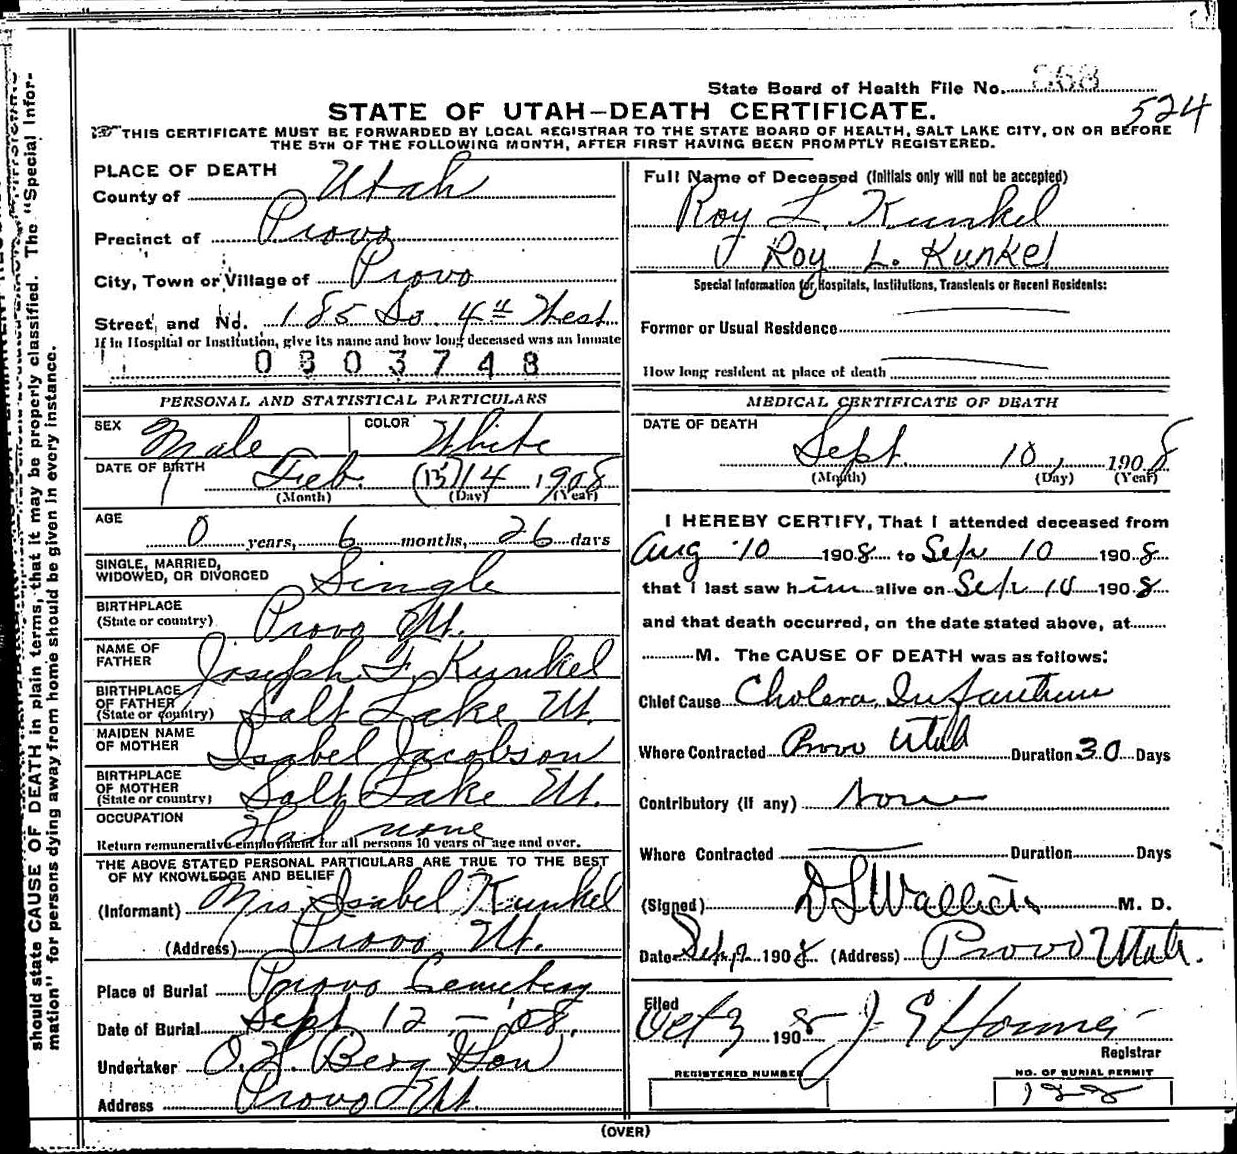 State Board of Health File No. 868
STATE OF UTAH—DEATH CERTIFICATE.
524
THIS CERTIFICATE MUST BE FORWARDED BY LOCAL REGISTRAR TO THE STATE BOARD OF HEALTH, SALT LAKE CITY, ON OR BEFORE
THE 5TH OF THE FOLLOWING MONTH, AFTER FIRST HAVING BEEN PROMPTLY REGISTERED.
PLACE OF DEATH
County of Utah
Precinct of Provo
City, Town or Village of Provo
Street and No. 185 So. 4th West
If in Hospital or Institution, give its name and how long deceased was an Inmate
0803748
PERSONAL AND STATISTICAL PARTICULARS
SEX Male COLOR White
DATE OF BIRTH Feb. (15) 14, 1908
(Month) (Day) (Year)
AGE
0 years, 6 months, 26 days
SINGLE, MARRIED,
WIDOWED, OR DIVORCED Single
BIRTHPLACE
(State or country) Provo Ut.
NAME OF
FATHER Joseph F. Kunkel
BIRTHPLACE
OF FATHER
(State or country) Salt Lake Ut.
MAIDEN NAME
OF MOTHER Isabel Jacobson
BIRTHPLACE
OF MOTHER
(State or country) Salt Lake Ut.
OCCUPATION
Had none
Return remunerative employment for all persons 10 years of age and over.
THE ABOVE STATED PERSONAL PARTICULARS ARE TRUE TO THE BEST
OF MY KNOWLEDGE AND BELIEF
(Informant) Mrs. Isabel Kunkel
(Address) Provo Ut.
Place of Burial Provo Cemetery
Date of Burial Sept. 12 - '08.
Undertaker O. H. Berg & Son
Address Provo Ut.
Full Name of Deceased (Initials only will not be accepted)
Roy L. Kunkel
Roy L. Kunkel
Special Information for Hospitals, Institutions, Transients or Recent Residents:
Former or Usual Residence
How long resident at place of death
MEDICAL CERTIFICATE OF DEATH
DATE OF DEATH
Sept. 10, 1908
(Month) (Day) (Year)
I HEREBY CERTIFY, That I attended deceased from
Aug 10 1908 to Sep 10 1908
that I last saw him alive on Sep 10 1908
and that death occurred, on the date stated above, at
M. The CAUSE OF DEATH was as follows:
Chief Cause Cholera Infantum
Where Contracted Provo Utah Duration 30 Days
Contributory (if any) None
Where Contracted Duration Days
(Signed) M. D.
Date 1908 (Address) Provo Utah.
Filed
Oct 3 1908 J E
Registrar
REGISTERED NUMBER
NO. OF BURIAL PERMIT
122
(OVER)
should state CAUSE OF DEATH in plain terms, that it may be properly classified. The "Special Infor-
mation" for persons dying away from home should be given in every instance.